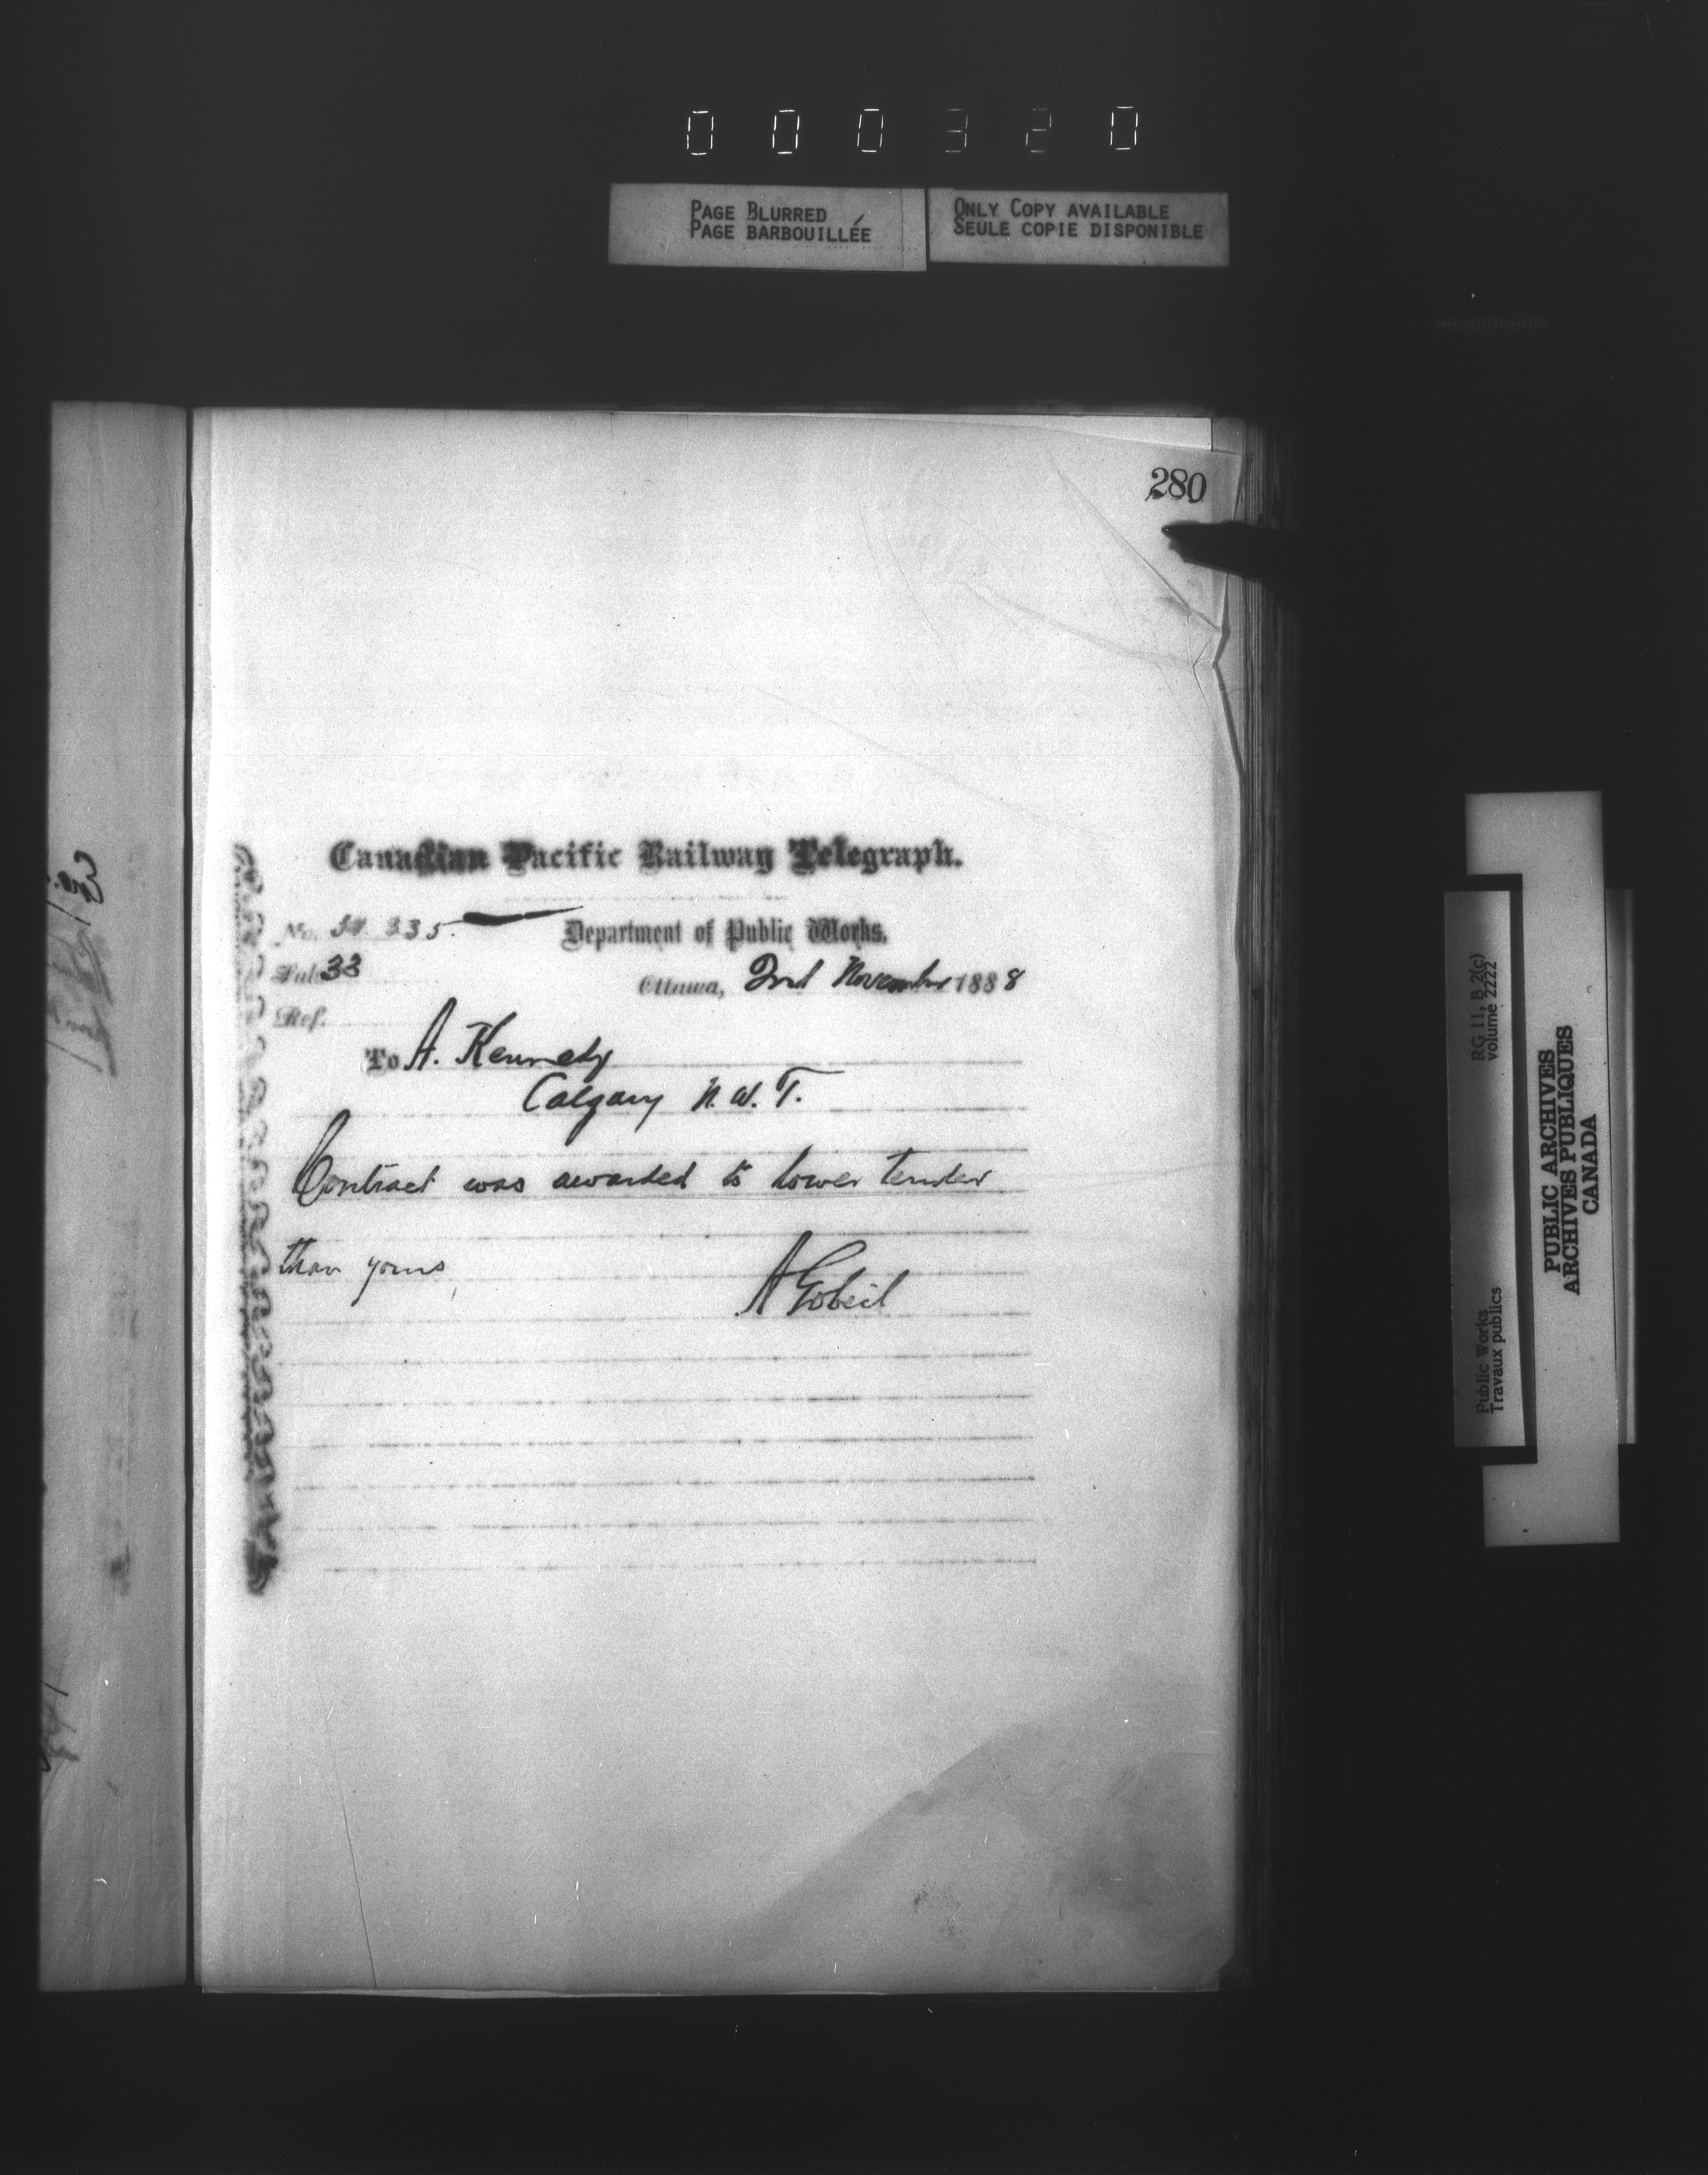 000320
PAGE BLURRED
PAGE BARBOUILLÉE
ONLY COPY AVAILABLE
SEULE COPIE DISPONIBLE
280
Canadian Pacific Railway Telegraph.
No. 335.
Department of Public Works,
Sub 33
Ottawa, 2nd November 1888
Ref.
To A. Kennedy
Calgary N. W. T.
Contract was awarded to lower tender
than yours
A Gobeil
RG 11, B 2(c)
volume 2222
Public Works
Travaux publics
PUBLIC ARCHIVES
ARCHIVES PUBLIQUES
CANADA